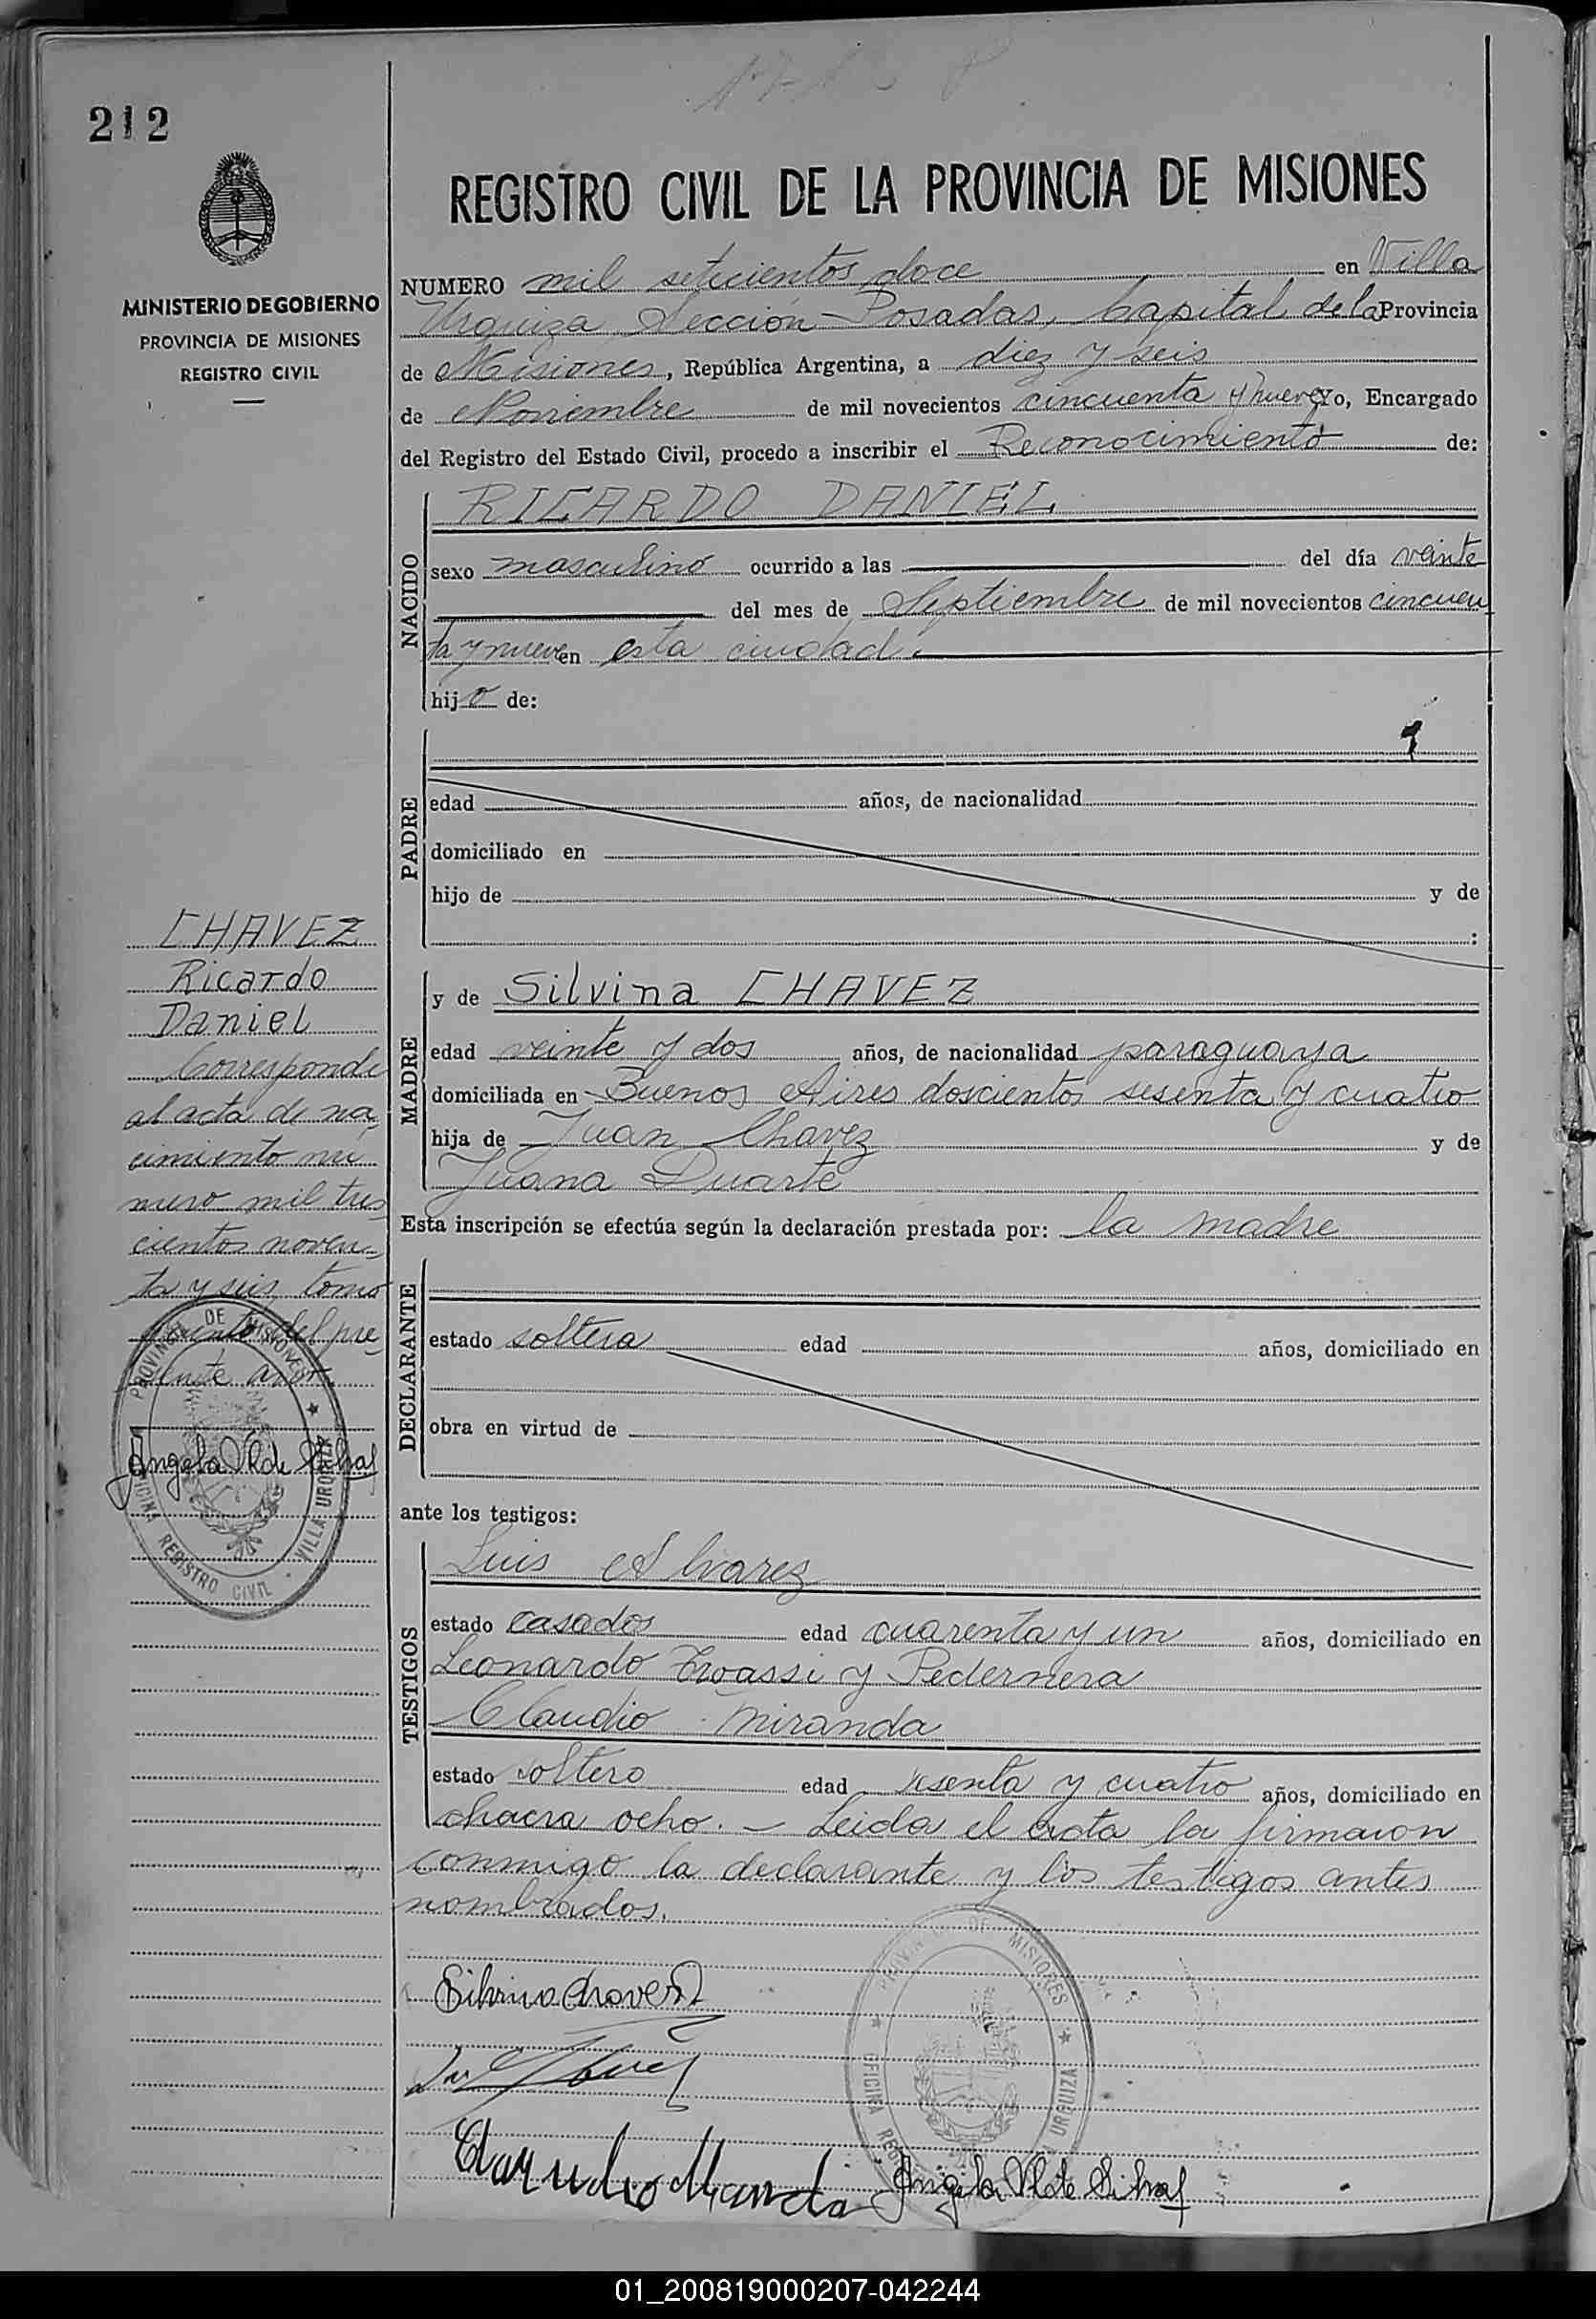 212
MINISTERIO DE GOBIERNO
PROVINCIA DE MISIONES
REGISTRO CIVIL
REGISTRO CIVIL DE LA PROVINCIA DE MISIONES
NUMERO mil setecientos doce en Villa
Urquiza Sección Posadas, Capital de la Provincia
de Misiones, República Argentina, a diez y seis
de Noviembre de mil novecientos cincuenta y nueve Yo, Encargado
del Registro del Estado Civil, procedo a inscribir el Reconocimiento de:
NACIDO
RICARDO DANIEL
sexo masculino ocurrido a las del día veinte
del mes de Septiembre de mil novecientos cincuen
ta y nueve en esta ciudad.
hijo de:
PADRE
edad años, de nacionalidad
domiciliado en
hijo de y de
:
MADRE
y de Silvina CHAVEZ
edad veinte y dos años, de nacionalidad paraguaya
domiciliada en Buenos Aires doscientos sesenta y cuatro
hija de Juan Chavez y de
Juana Duarte
Esta inscripción se efectúa según la declaración prestada por: la madre
DECLARANTE
estado soltera edad años, domiciliado en
obra en virtud de
ante los testigos:
TESTIGOS
Luis Alvarez
estado casados edad cuarenta y un años, domiciliado en
Leonardo Troassi y Pedernera
Claudio Miranda
estado soltero edad sesenta y cuatro años, domiciliado en
chacra ocho. - Leida el acta la firmaron
conmigo la declarante y los testigos antes
nombrados.
Silvina Chavez
Claudio Miranda
CHAVEZ
Ricardo
Daniel
Corresponde
al acta de na
cimiento nú
mero mil tres
cientos noven
ta y seis, tomo
del pre
sente año.
PROVINCIA DE MISIONES
OFICINA REGISTRO CIVIL · VILLA URQUIZA
PROVINCIA DE MISIONES
OFICINA URQUIZA
01_200819000207-042244